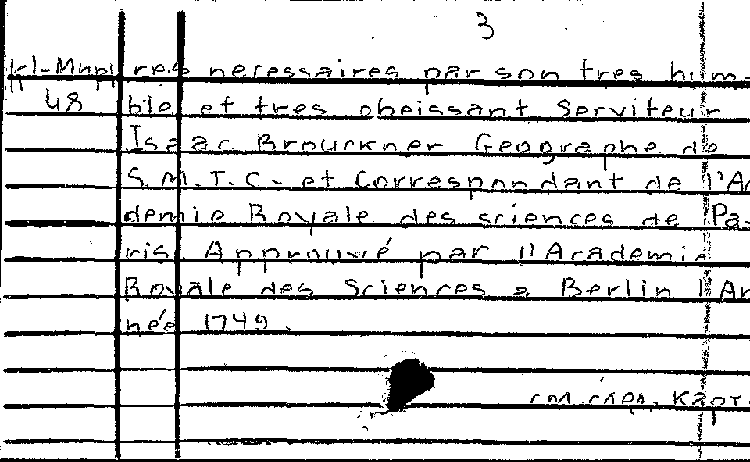 3
res necessaires par son tres hum-
48 ble et tres obeissant Serviteur
Isaac Brouckner Geographe de
S.M.T.C. et Correspondant de l'Ac
demie Royale des sciences de Pa-
ris. Approuvé par l'Academie
Royale des Sciences a Berlin l'An
née 1749.
см. след. карт